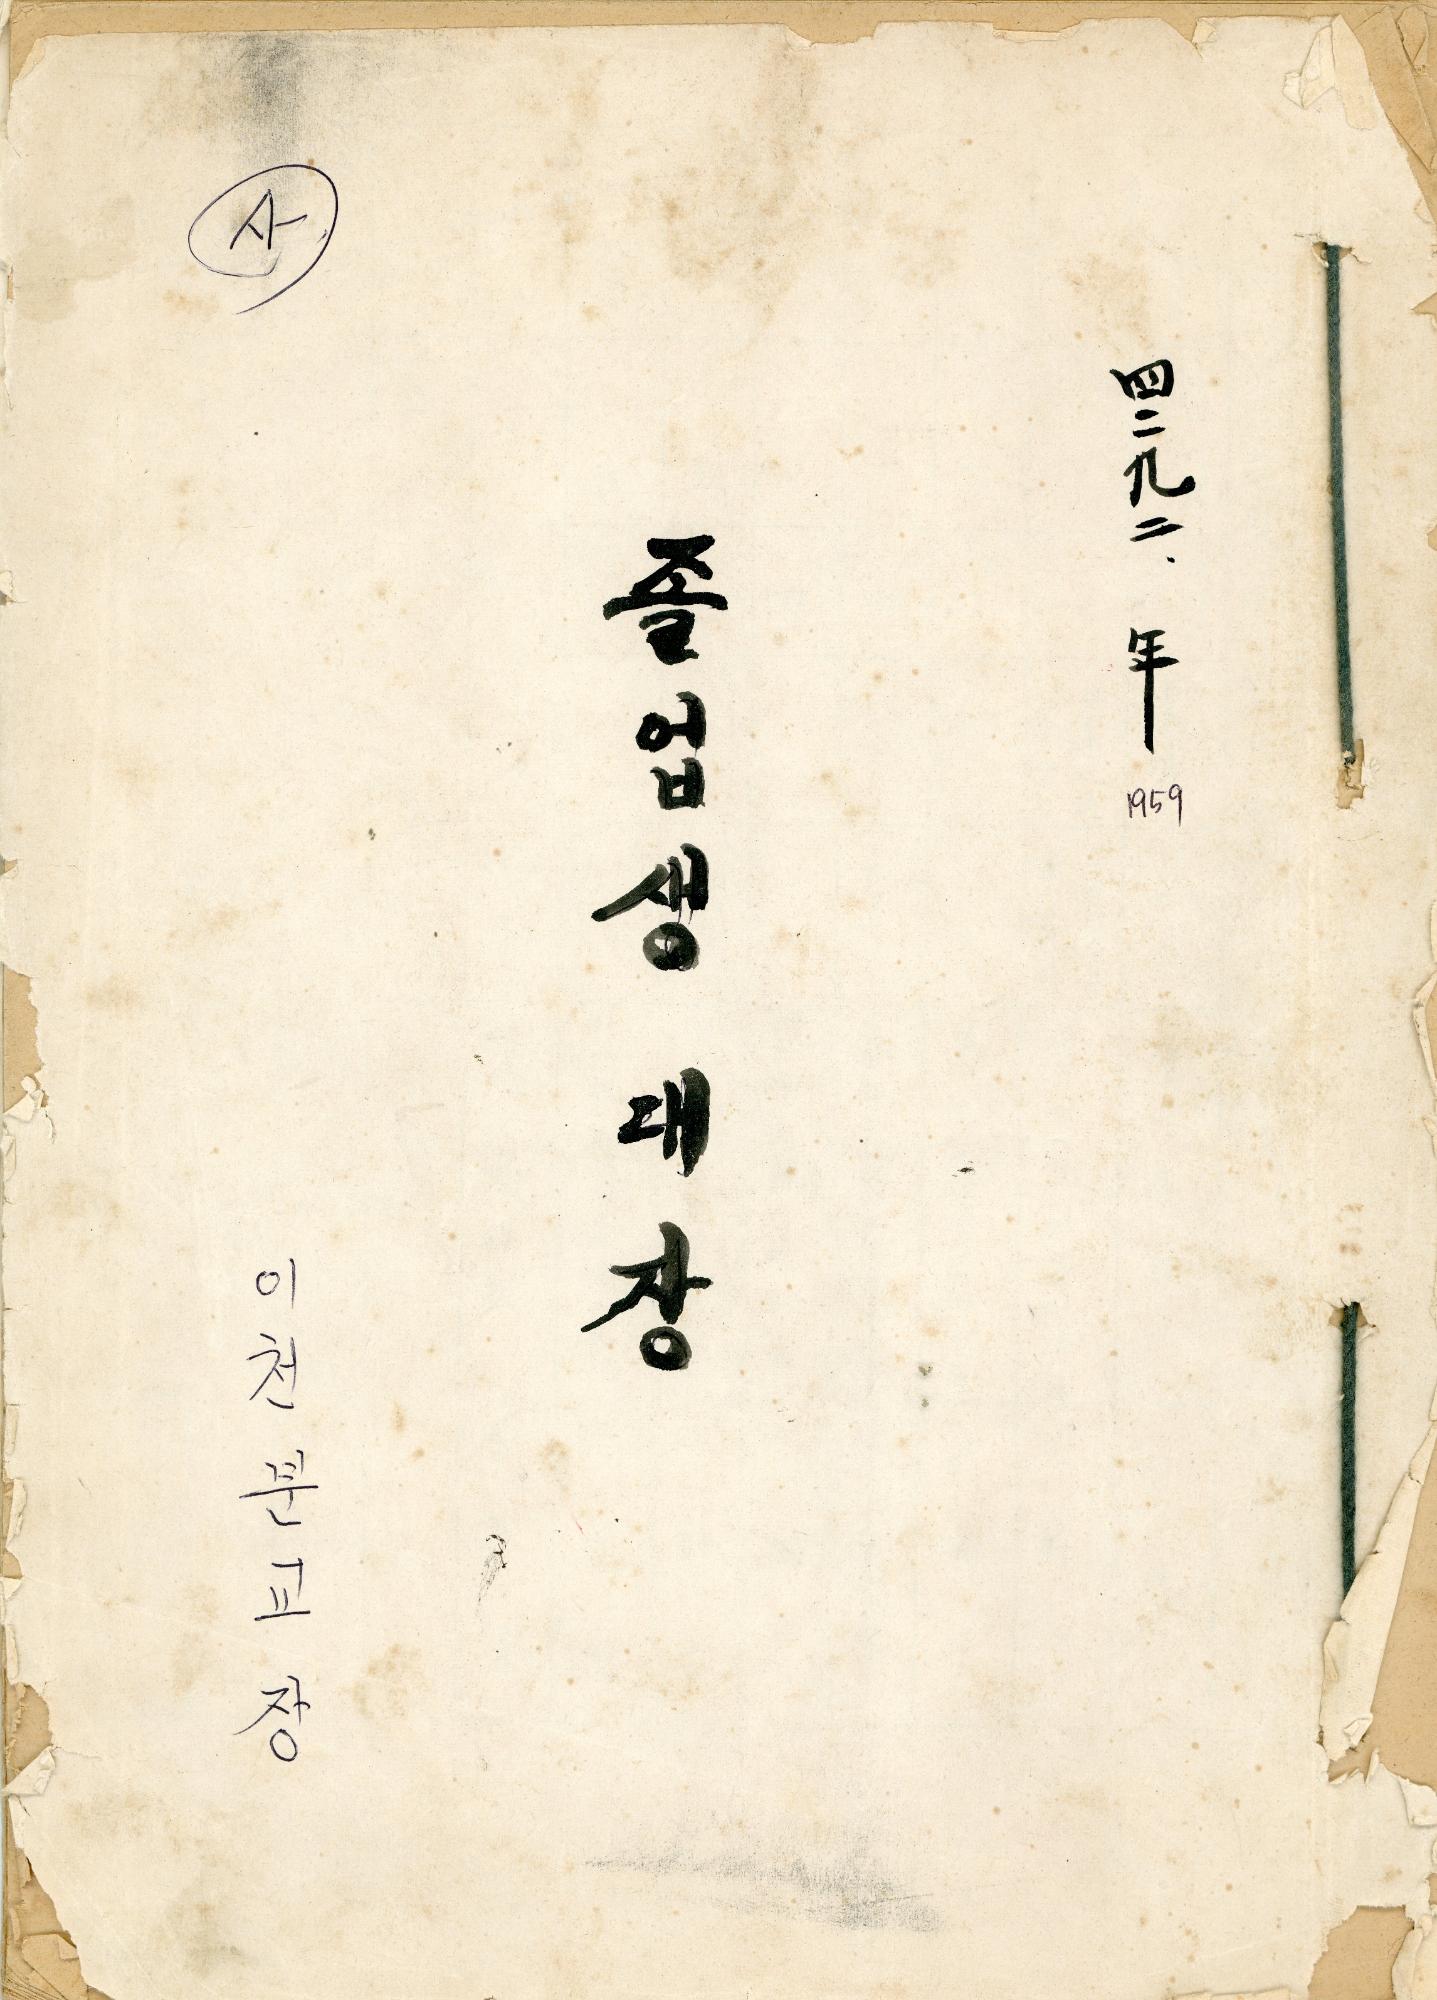 四二九二. 年
1959
졸업생 대장
사
이천 분교장